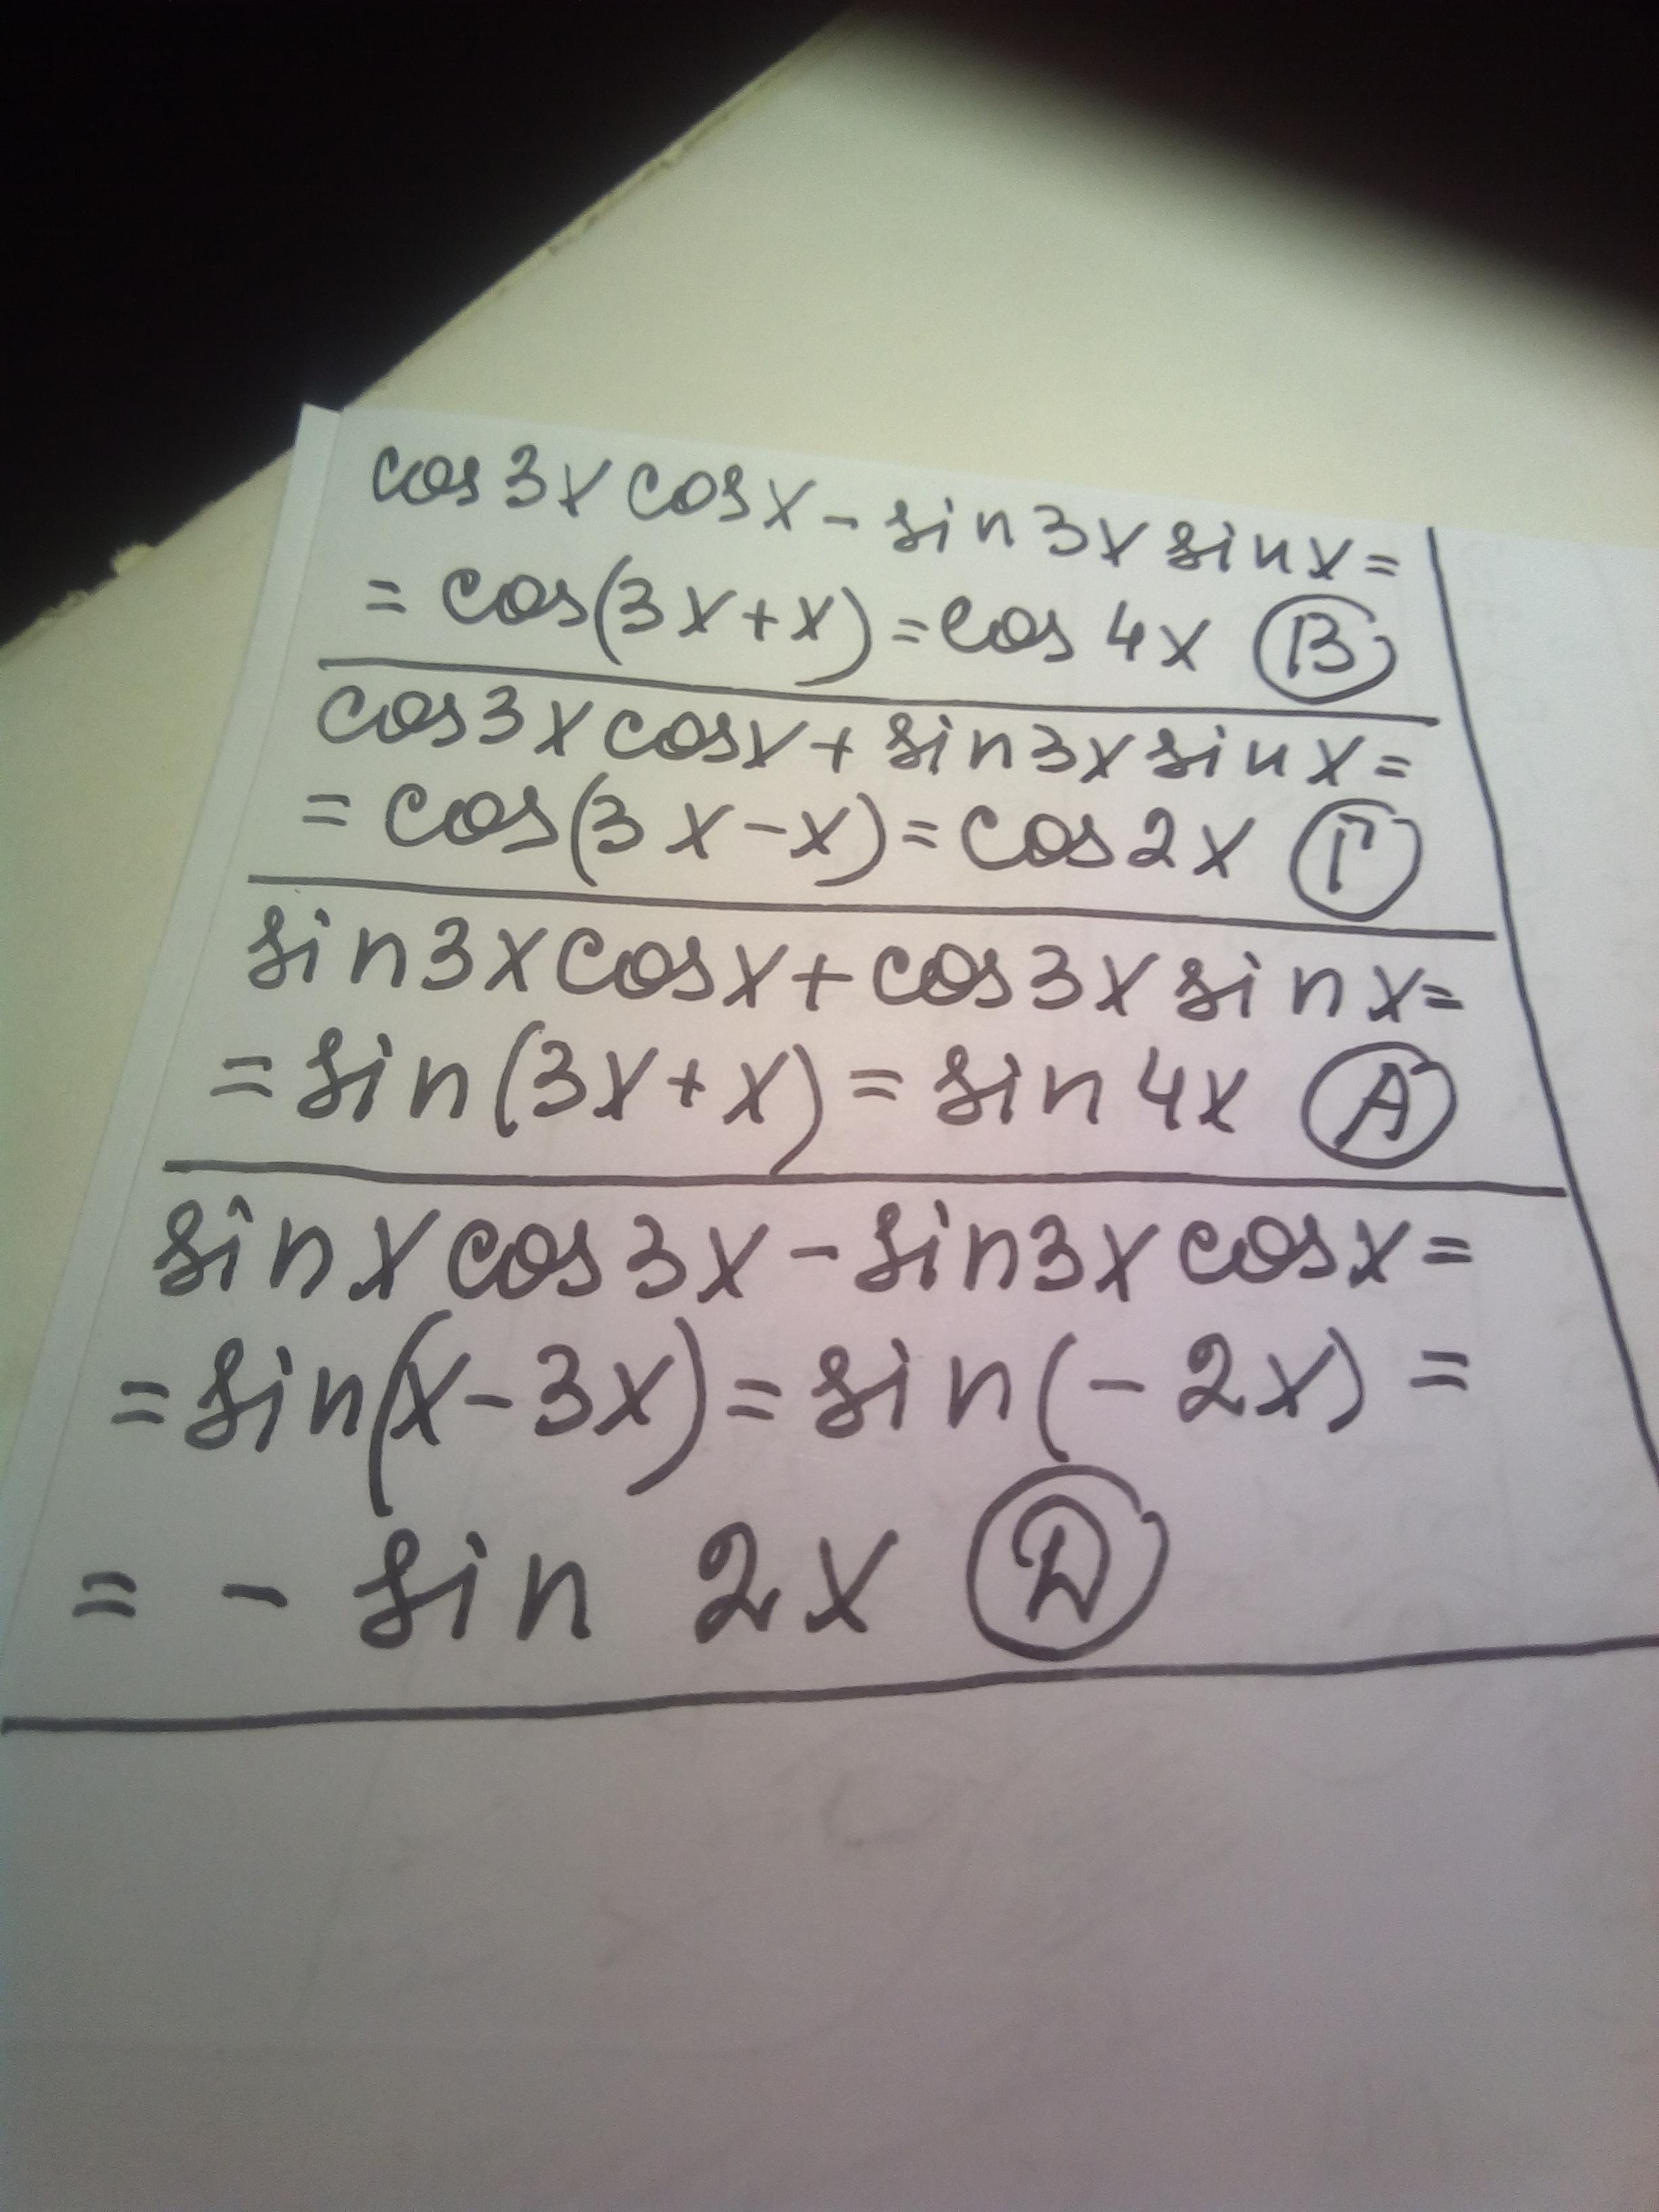 cos 3x cos x - sin 3x sin x =
= cos(3x + x) = cos 4x В
cos 3x cos x + sin 3x sin x =
= cos(3x - x) = cos 2x Г
sin 3x cos x + cos 3x sin x =
= sin(3x + x) = sin 4x А
sin x cos 3x - sin 3x cos x =
= sin(x - 3x) = sin(-2x) =
= - sin 2x Д